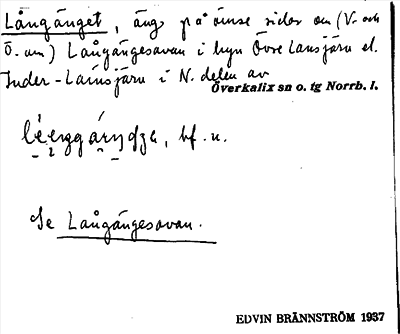 Långänget, ängs på ömse sidor om (V. och
Ö. om) Långängesavan i byn Övre Lansjärv el.
Inder-Lansjärv i N. delen av
Överkalix sn o. tg Norrb. l.
bf. n.
Se Långängesavan.
EDVIN BRÄNNSTRÖM 1937